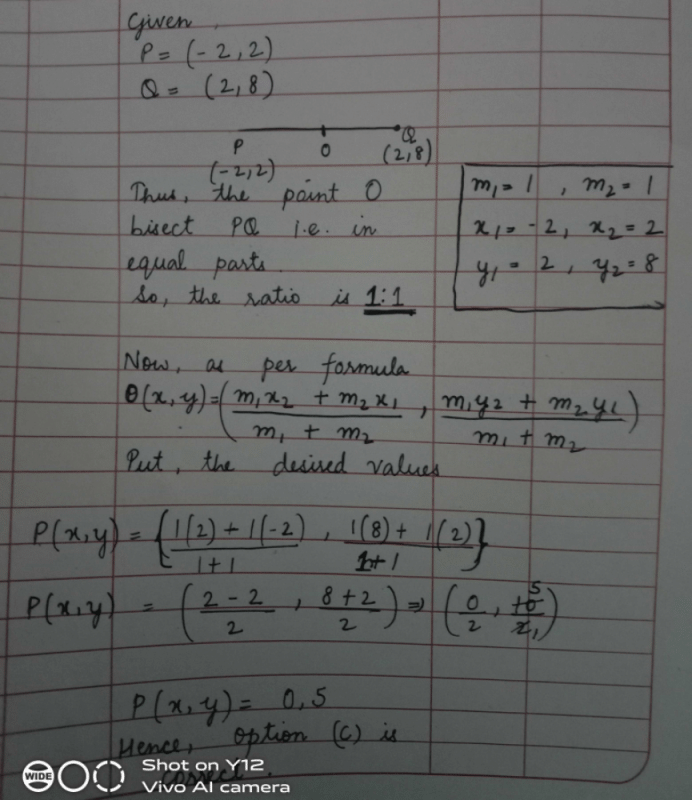 Given,
P = (-2, 2)
Q = (2, 8)
P O Q
(-2, 2) (2, 8)
Thus, the point O
bisect PQ i.e. in
equal parts.
So, the ratio is 1:1
m₁ = 1 , m₂ = 1
x₁ = -2, x₂ = 2
y₁ = 2 , y₂ = 8
Now, as per formula
O(x, y) = (m₁x₂ + m₂x₁ / m₁ + m₂ , m₁y₂ + m₂y₁ / m₁ + m₂)
Put, the desired values
P(x, y) = {1(2) + 1(-2) / 1+1 , 1(8) + 1(2) / 1+1}
P(x, y) = (2 - 2 / 2 , 8 + 2 / 2) ⇒ (0/2 , 10/2) 5 1
P(x, y) = 0, 5
Hence, option (C) is
correct.
WIDE
Shot on Y12
Vivo AI camera